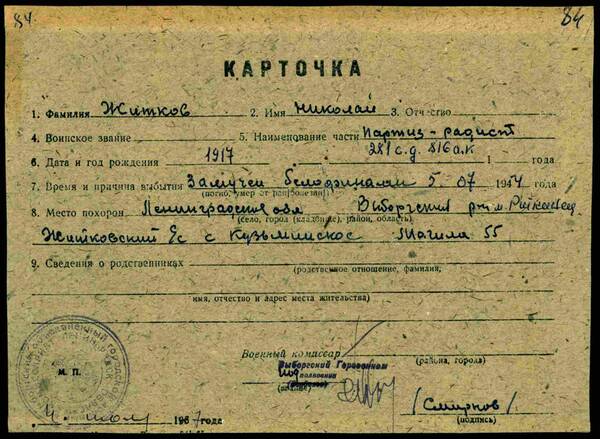 84 84
КАРТОЧКА
1. Фамилия Житков 2. Имя Николай 3. Отчество
4. Воинское звание 5. Наименование части партиз-радист
281 с.д. 816 а.к
6. Дата и год рождения 1917 1 года
7. Время и причина выбытия Замучен белофиннами 5. 07 1944 года
(погиб, умер от ран, болезни)
8. Место похорон Ленинградская обл Выборгский
(село, город (кладбище), район, область)
Житковский с с Кузьминское Могила 55
9. Сведения о родственниках
(родственное отношение, фамилия,
имя, отчество и адрес места жительства)
Военный комиссар
Выборгский Горвоенком
(района, города)
подполковник
(звание)
М. П.
1967 года
/Смирнов/
(подпись)